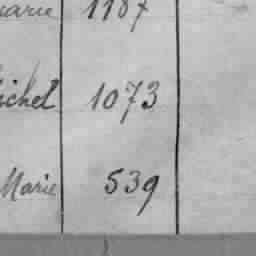 Marie 1187
ichel 1073
Marie 539